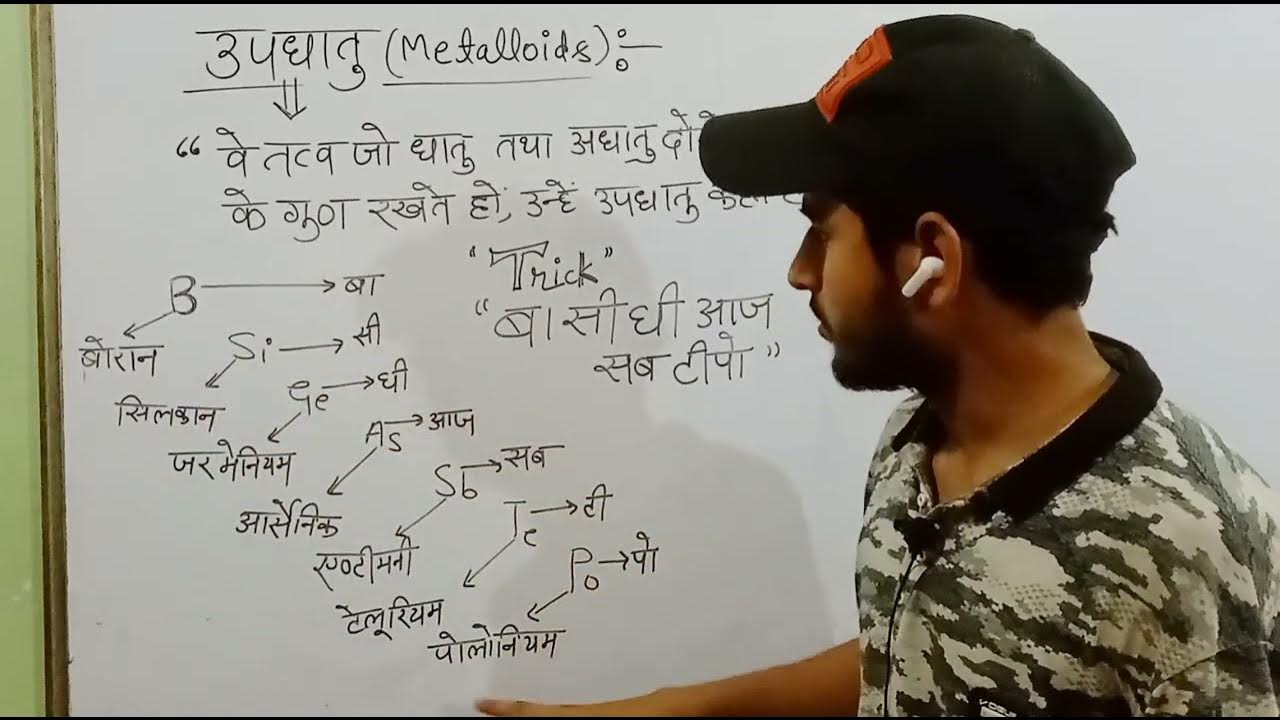 उपधातु (Metalloids):-
“ वे तत्व जो धातु तथा अधातु
के गुण रखते हों, उन्हें उपधातु
“Trick”
“बा सी घी आज
सब टीपो”
B → बा
बोरान
Si → सी
सिलकान
Ge → घी
जरमेनियम
As → आज
आर्सेनिक
Sb → सब
एण्टीमनी
Te → टी
टेलूरियम
Po → पो
पोलोनियम